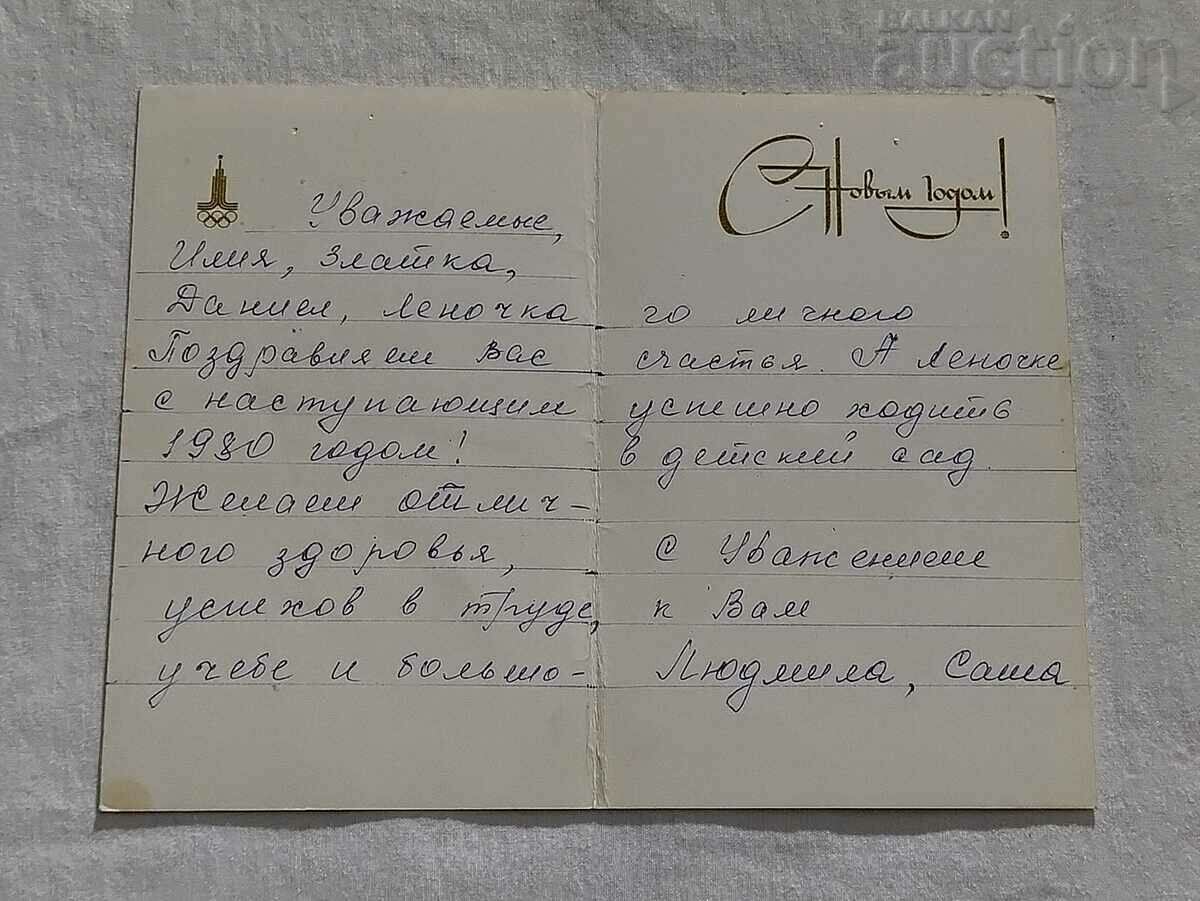 BALKAN
auction
Уважаемые,
Илия, Златка,
Даниел, Леночка
Поздравляем Вас
с наступающим
1980 годом!
Желаем отлич-
ного здоровья,
успехов в труде,
учебе и большо-
С Новым Годом!
го личного
счастья. А Леночке
успешно ходить
в детский сад.
С Уважением
к Вам
Людмила, Саша